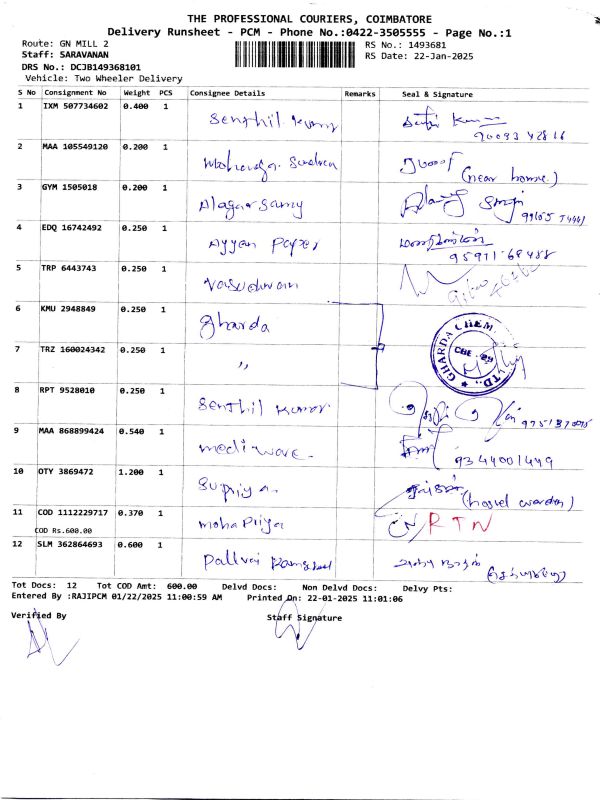 THE PROFESSIONAL COURIERS, COIMBATORE
Delivery Runsheet - PCM - Phone No.:0422-3505555 - Page No.:1
Route: GN MILL 2
RS No.: 1493681
Staff: SARAVANAN
RS Date: 22-Jan-2025
DRS No.: DCJB149368101
Vehicle: Two Wheeler Delivery
S No Consignment No Weight PCS Consignee Details Remarks Seal & Signature
1 IXM 507734602 0.400 1 Senthil Kumar
2 MAA 105549120 0.200 1
(near home)
3 GYM 1505018 0.200 1 Alagar Samy
4 EDQ 16742492 0.250 1 Ayyan Paper
5 TRP 6443743 0.250 1 Vasudevan
6 KMU 2948849 0.250 1 Gharda
GHARDA CHEM. LTD.
7 TRZ 160024342 0.250 1 "
8 RPT 9528010 0.250 1 Senthil Kumar
9 MAA 868899424 0.540 1 mediwave.
9344001449
10 OTY 3869472 1.200 1 Supriya.
(hostel warden)
11 COD 1112229717 0.370 1 Moha Priya RTN
COD Rs.600.00
12 SLM 362864693 0.600 1
Tot Docs: 12 Tot COD Amt: 600.00 Delvd Docs: Non Delvd Docs: Delvy Pts:
Entered By :RAJIPCM 01/22/2025 11:00:59 AM Printed On: 22-01-2025 11:01:06
Verified By Staff Signature